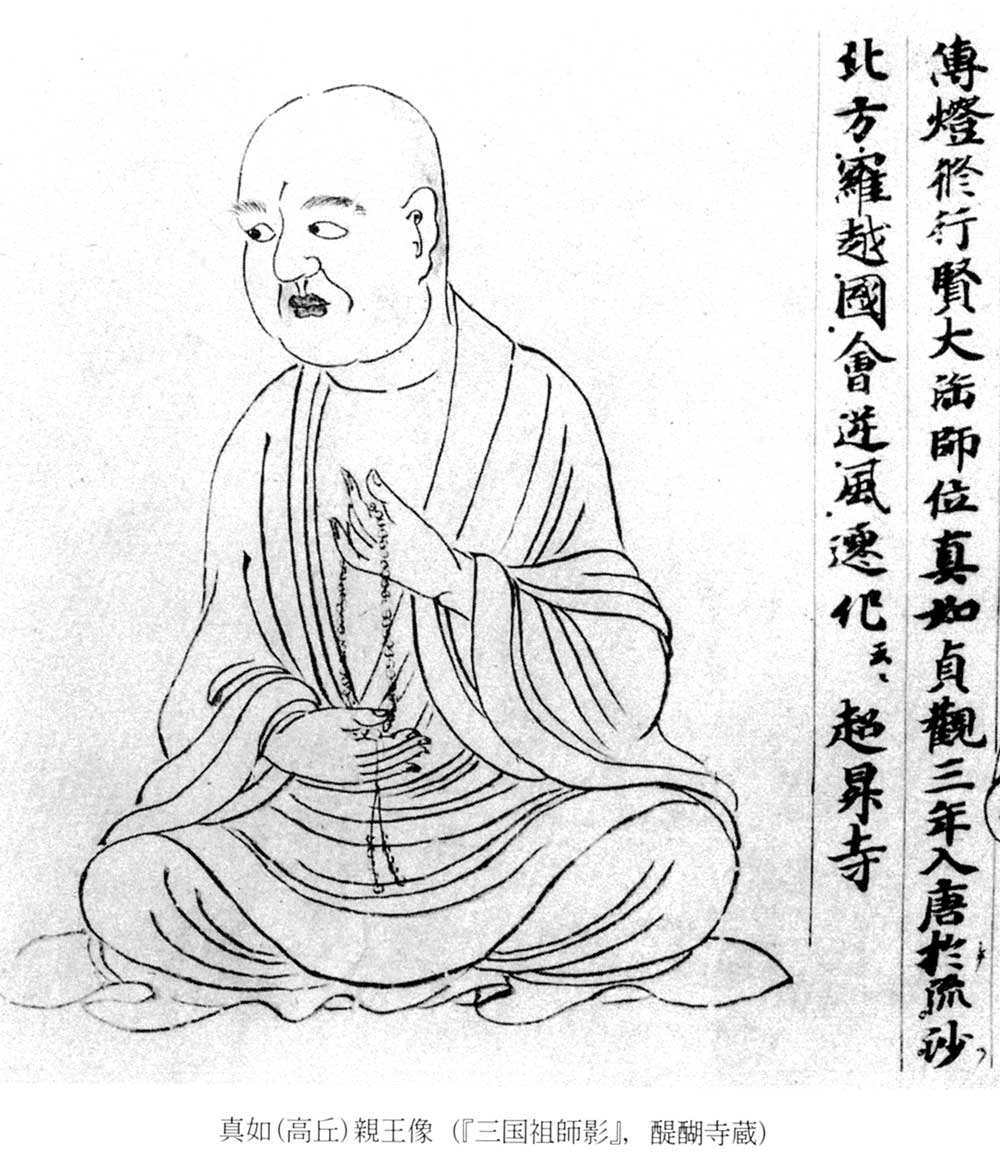 傳燈修行賢大法師位真如貞觀三年入唐於流沙
北方羅越國會逆風遷化云々 超昇寺
真如(高丘)親王像(『三国祖師影』,醍醐寺蔵)